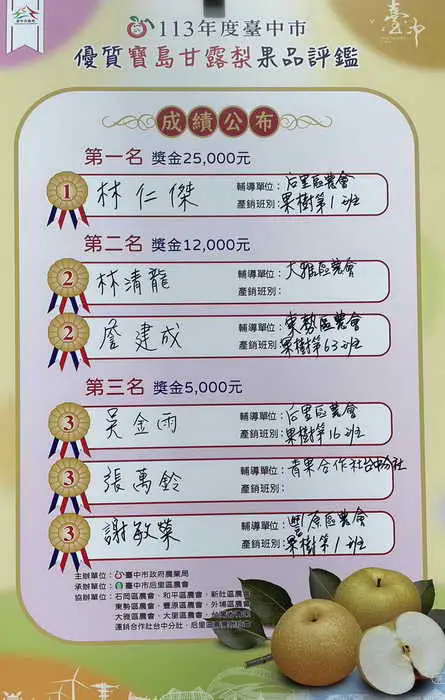 113年度臺中市
優質寶島甘露梨果品評鑑
臺中
成績公布
第一名 獎金25,000元
1 林仁傑
輔導單位：后里區農會
產銷班別：果樹第1班
第二名 獎金12,000元
2 林清龍
輔導單位：大雅區農會
產銷班別：
2 詹建成
輔導單位：東勢區農會
產銷班別：果樹第63班
第三名 獎金5,000元
3 吳金雨
輔導單位：后里區農會
產銷班別：果樹第16班
3 張萬鈴
輔導單位：青果合作社台中分社
產銷班別：
3 謝敏榮
輔導單位：豐原區農會
產銷班別：果樹第1班
主辦單位：臺中市政府農業局
承辦單位：臺中市后里區農會
協辦單位：石岡區農會、和平區農會、新社區農會
東勢區農會、豐原區農會、外埔區農會
大雅區農會、大里區農會、
運銷合作社台中分社、后里區